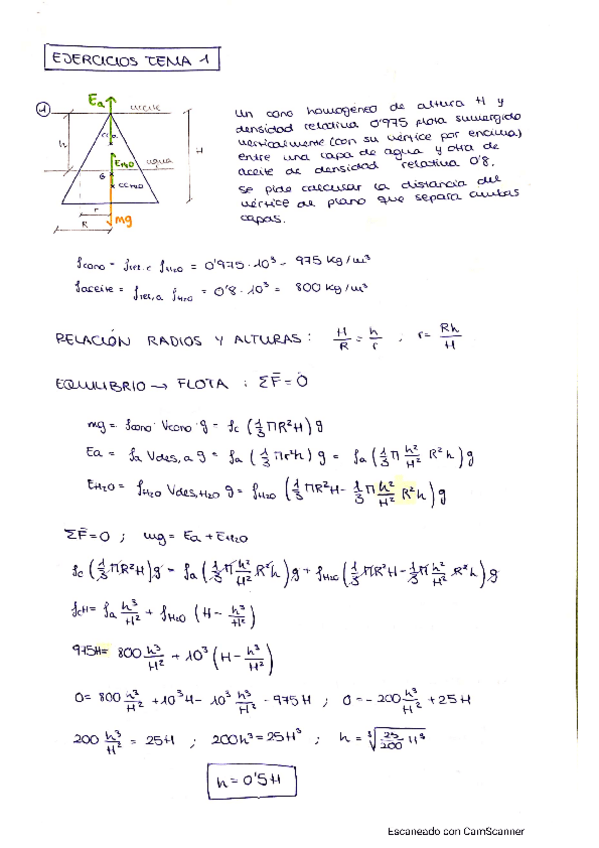 EJERCICIOS TEMA 1
1
Ea
aceite
h
H
EH2O
agua
G
r
R
mg
Un cono homogéneo de altura H y
densidad relativa 0'975 flota sumergido
verticalmente (con su vértice por encima)
entre una capa de agua y otra de
aceite de densidad relativa 0'8.
Se pide calcular la distancia del
vértice al plano que separa ambas
capas.
ρcono = ρrel,c ρH2O = 0'975 · 10³ = 975 kg/m³
ρaceite = ρrel,a ρH2O = 0'8 · 10³ = 800 kg/m³
RELACIÓN RADIOS Y ALTURAS : H/R = h/r ; r = Rh/H
EQUILIBRIO → FLOTA : ΣF̄ = 0
mg = ρcono · Vcono · g = ρc (1/3 π R² H) g
Ea = ρa Vdes,a g = ρa (1/3 π r² h) g = ρa (1/3 π h²/H² R² h) g
EH2O = ρH2O Vdes,H2O g = ρH2O (1/3 π R² H - 1/3 π h²/H² R² h) g
ΣF̄ = 0 ; mg = Ea + EH2O
ρc (1/3 π R² H) g = ρa (1/3 π h²/H² R² h) g + ρH2O (1/3 π R² H - 1/3 π h²/H² R² h) g
ρc H = ρa h³/H² + ρH2O (H - h³/H²)
975H = 800 h³/H² + 10³ (H - h³/H²)
0 = 800 h³/H² + 10³H - 10³ h³/H² - 975 H ; 0 = -200 h³/H² + 25 H
200 h³/H² = 25H ; 200h³ = 25H³ ; h = ∛(25/200 H³)
h = 0'5H
Escaneado con CamScanner